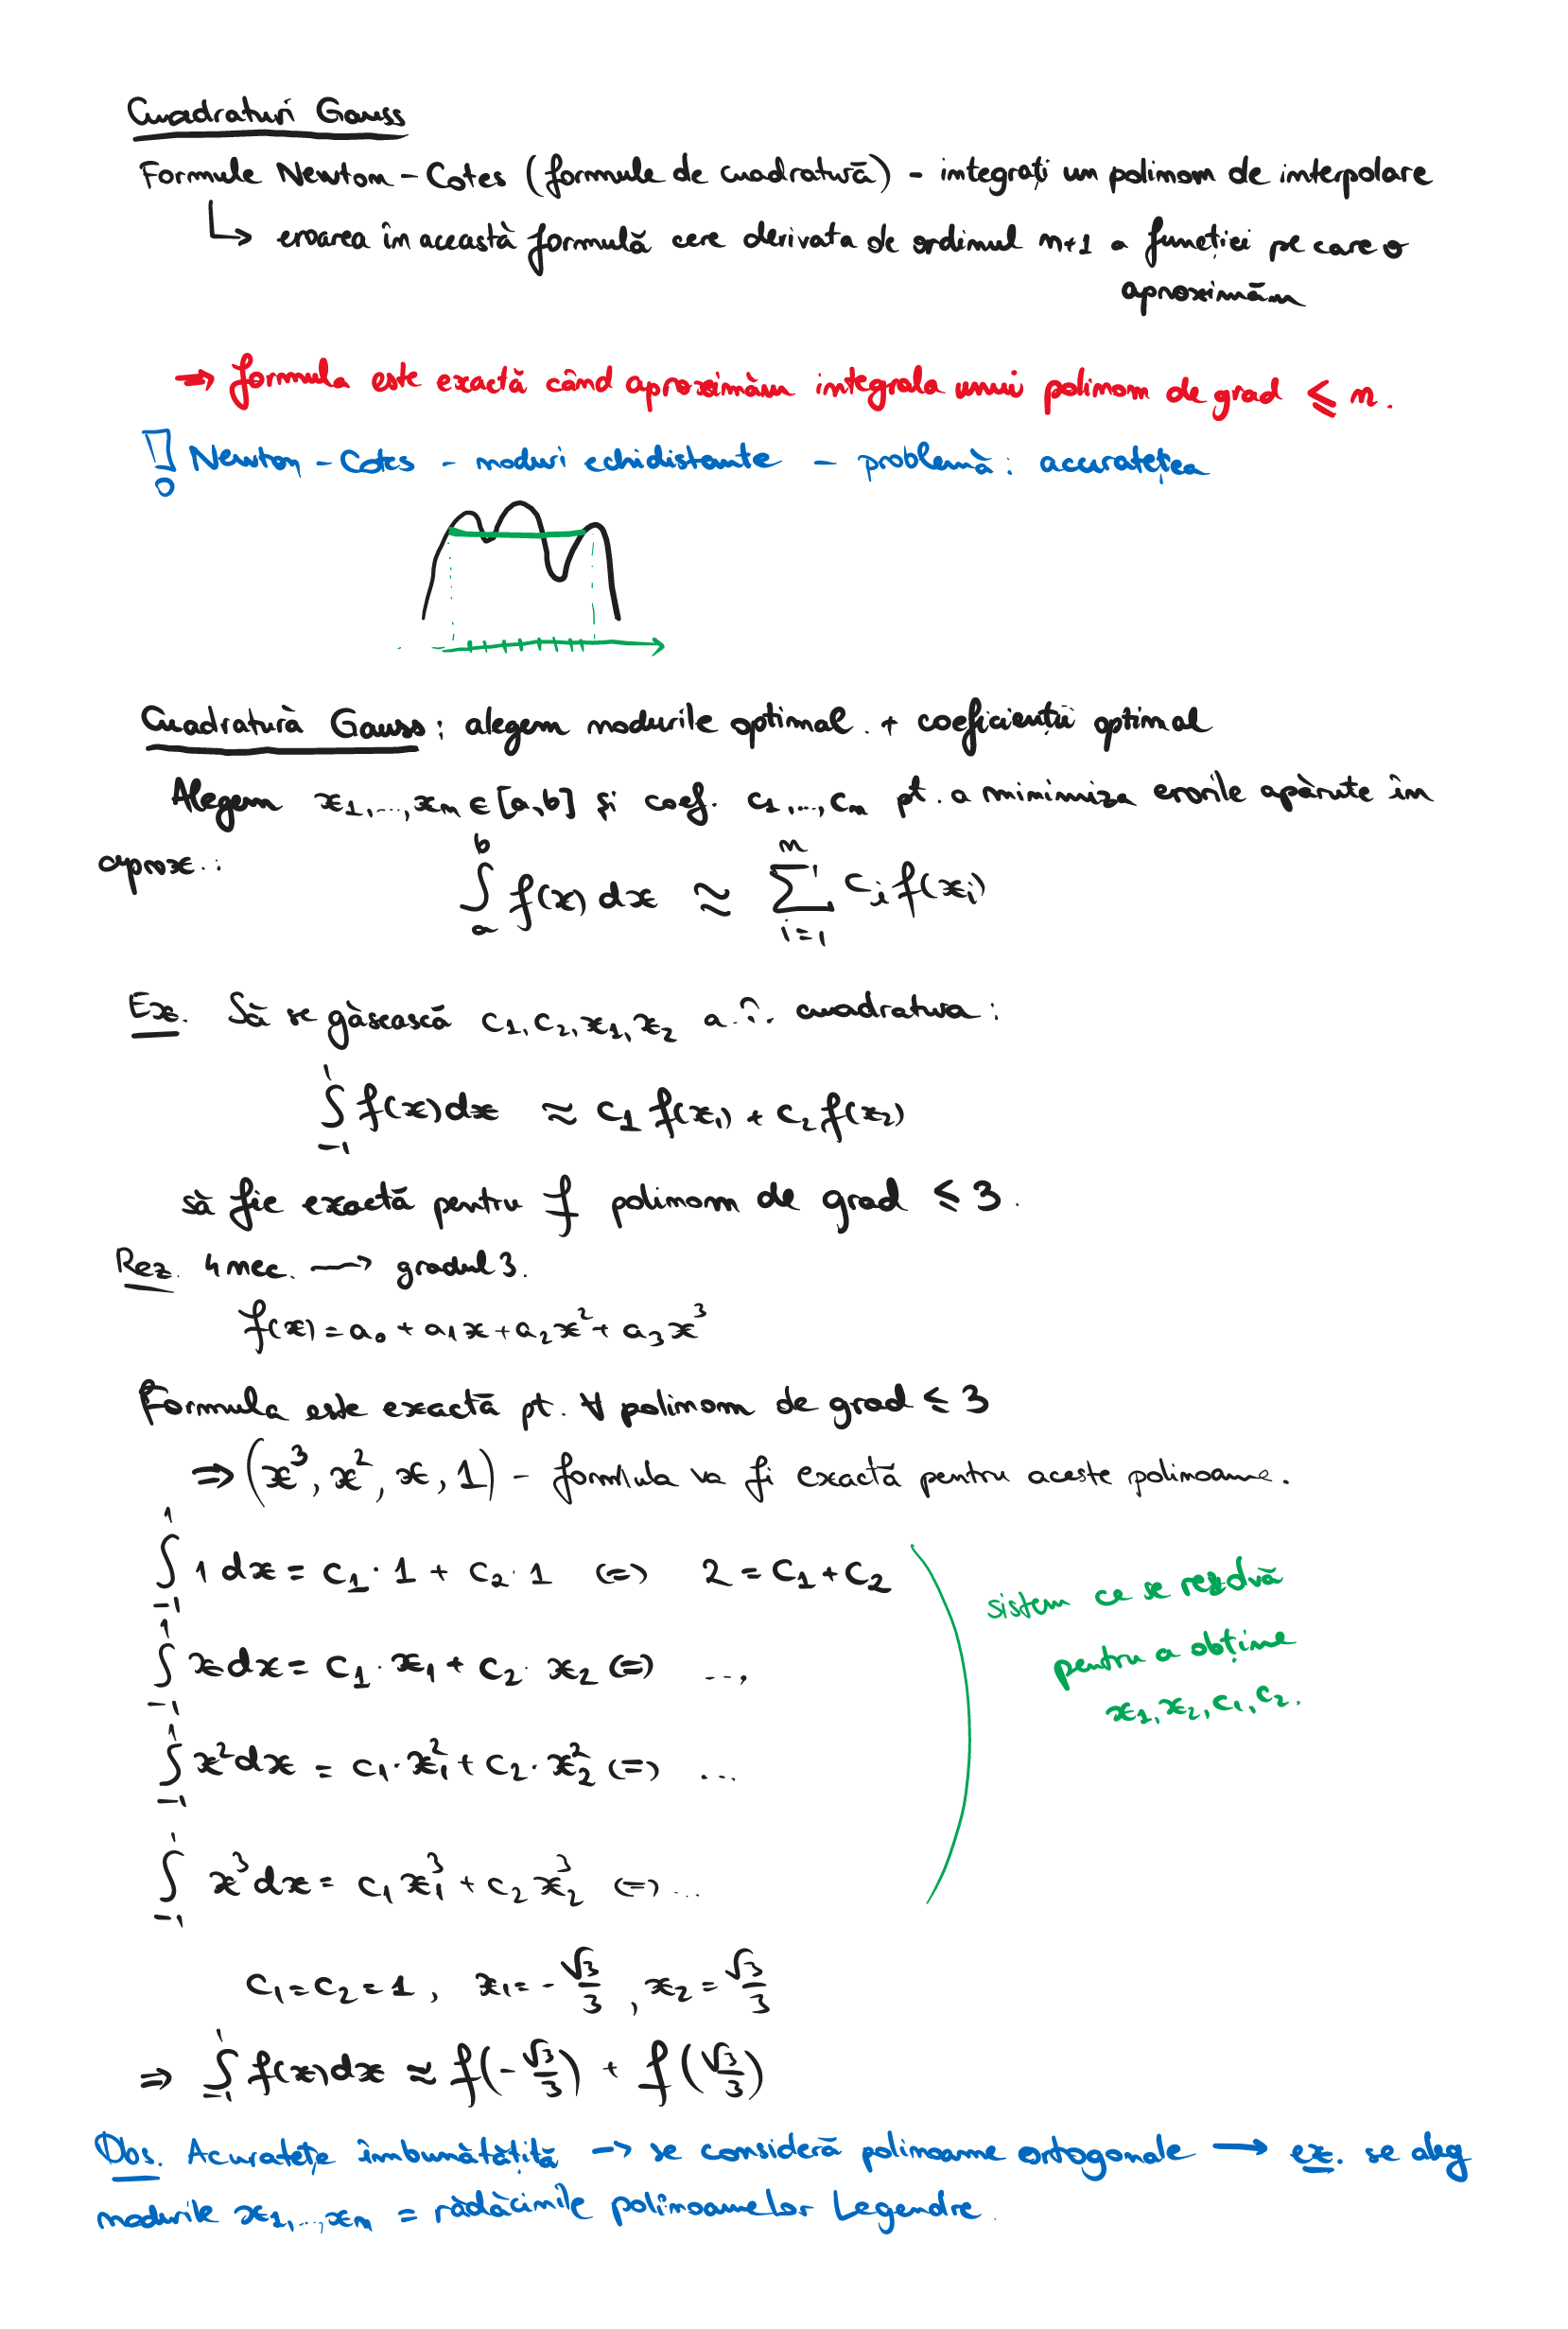 Cuadraturi Gauss
Formule Newton - Cotes (formule de cuadratură) - integrați un polinom de interpolare
↳ eroarea în această formulă cere derivata de ordinul n+1 a funcției pe care o
aproximăm
⇒ formula este exactă când aproximăm integrala unui polinom de grad ⩽ n.
! Newton - Cotes - noduri echidistante - problemă: acuratețea
Cuadratură Gauss: alegem nodurile optimal + coeficienții optimal
Alegem x₁,...,xₙ ∈ [a,b] și coef. c₁,...,cₙ pt. a minimiza erorile apărute în
aprox.:
∫ₐᵇ f(x) dx ≈ ∑ᵢ₌₁ⁿ cᵢ f(xᵢ)
Ex. Să se găsească c₁, c₂, x₁, x₂ a.î. cuadratura:
∫₋₁¹ f(x) dx ≈ c₁ f(x₁) + c₂ f(x₂)
să fie exactă pentru f polinom de grad ≤ 3.
Rez. 4 nec. → gradul 3.
f(x) = a₀ + a₁x + a₂x² + a₃x³
Formula este exactă pt. ∀ polinom de grad ≤ 3
⇒ (x³, x², x, 1) - formula va fi exactă pentru aceste polinoame.
∫₋₁¹ 1 dx = c₁ · 1 + c₂ · 1 (=) 2 = c₁ + c₂
∫₋₁¹ x dx = c₁ · x₁ + c₂ · x₂ (=) ...
∫₋₁¹ x² dx = c₁ · x₁² + c₂ · x₂² (=) ...
∫₋₁¹ x³ dx = c₁ x₁³ + c₂ x₂³ (=) ...
sistem ce se rezolvă
pentru a obține
x₁, x₂, c₁, c₂.
c₁ = c₂ = 1, x₁ = -√3/3, x₂ = √3/3
⇒ ∫₋₁¹ f(x) dx ≈ f(-√3/3) + f(√3/3)
Obs. Acuratețe îmbunătățită → se consideră polinoame ortogonale → ex. se aleg
nodurile x₁,...,xₙ = rădăcinile polinoamelor Legendre.